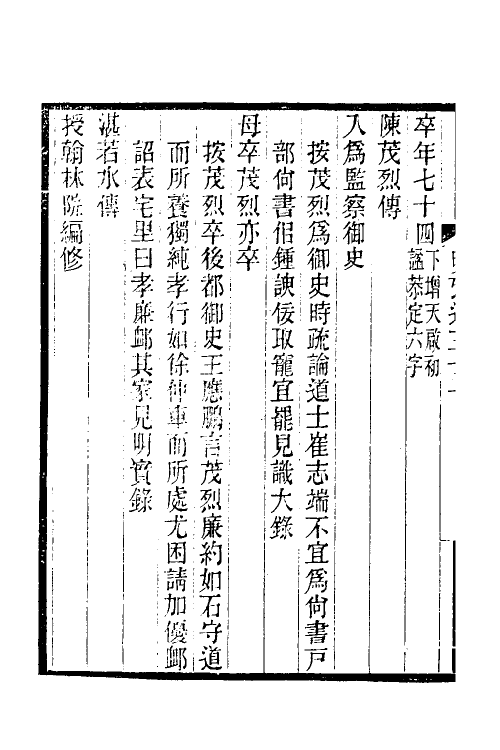 卒年七十四下增天啟初諡恭定六字
陳茂烈傳
入爲監察御史
按茂烈爲御史時疏論道士崔志端不宜爲尙書戸
部尙書侶鍾諛佞取寵宜罷見識大錄
母卒茂烈亦卒
按茂烈卒後都御史王應鵬言茂烈廉約如石守道
而所養獨純孝行如徐仲車而所處尤困請加優䘏
詔表宅里曰孝廉䘏其家見明實錄
湛若水傳
授翰林院編修